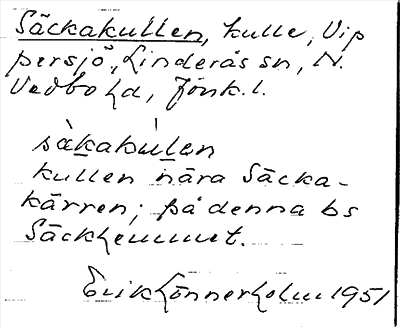 Säckakullen, kulle, Vip
persjö, Linderås sn, N.
Vedbo hd, Jönk. l.
sàkakùlen
kullen nära Säcka-
kärren; på denna bs
Säckhemmet.
Erik Lönnerholm 1951